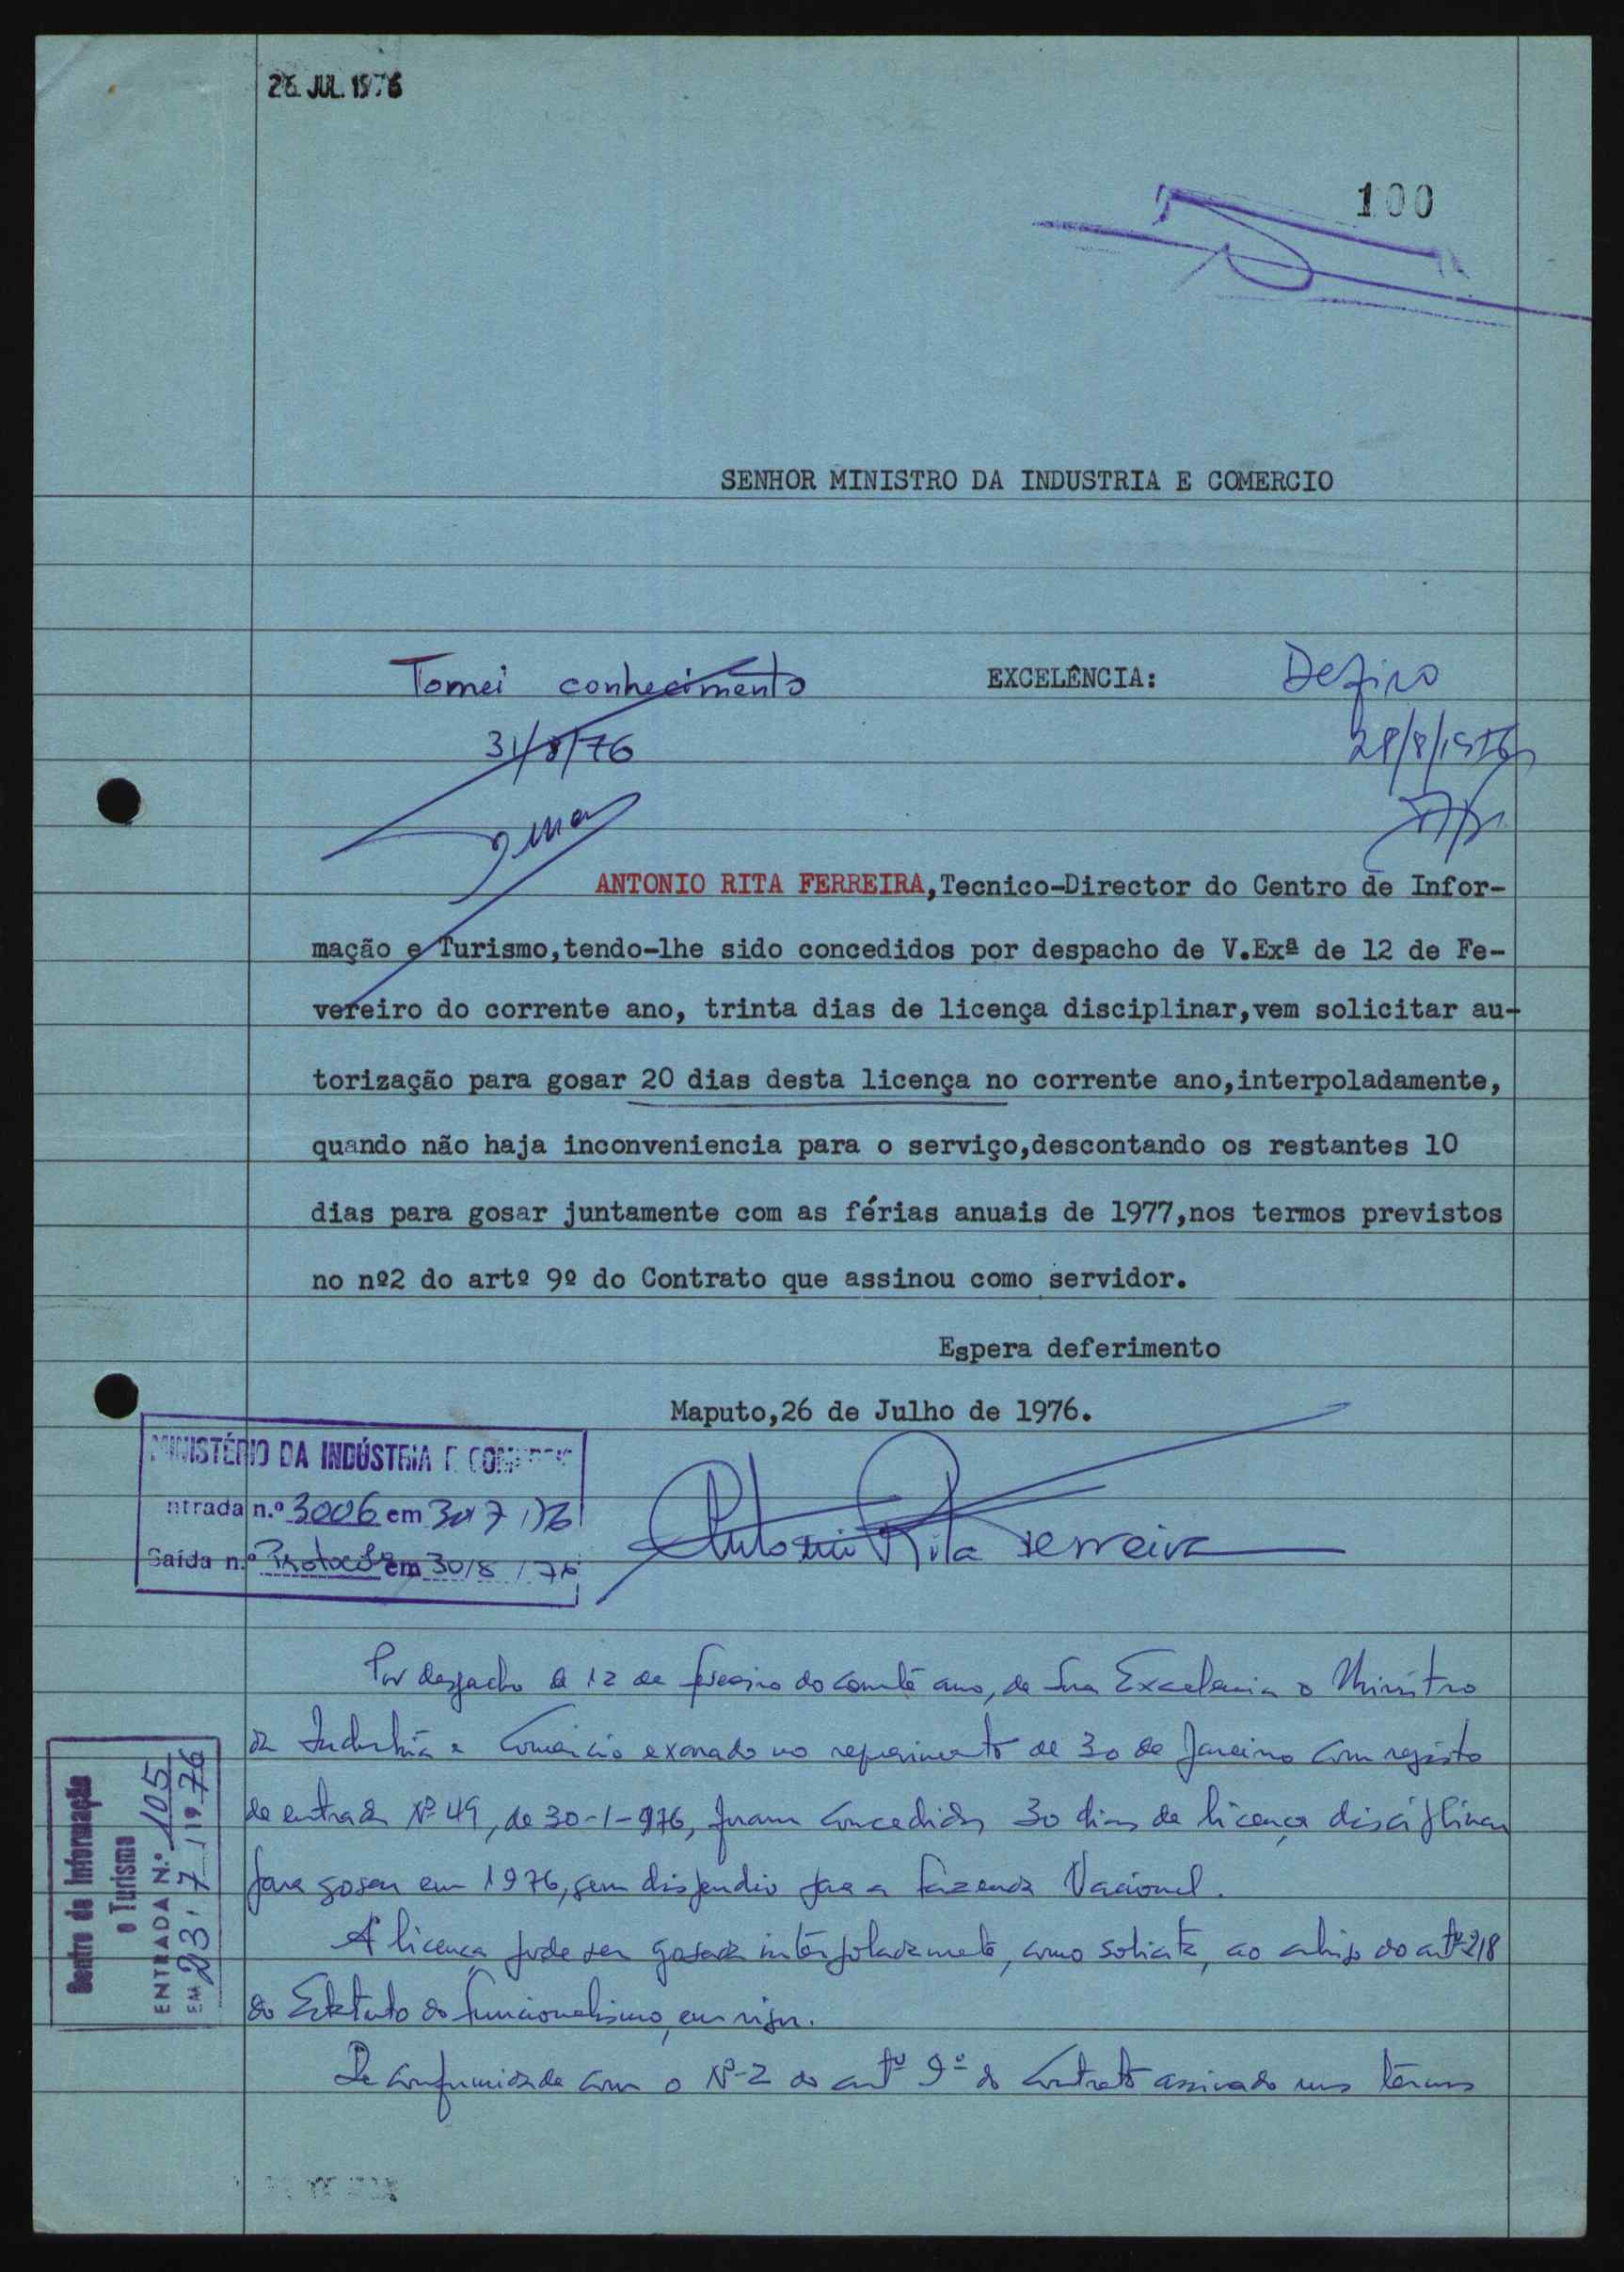 26. JUL. 1976
100
SENHOR MINISTRO DA INDUSTRIA E COMERCIO
Tomei conhecimento
EXCELÊNCIA:
Defiro
31/8/76
28/8/1976
ANTONIO RITA FERREIRA,Tecnico-Director do Centro de Infor-
mação e Turismo,tendo-lhe sido concedidos por despacho de V.Exª de 12 de Fe-
vereiro do corrente ano, trinta dias de licença disciplinar,vem solicitar au-
torização para gosar 20 dias desta licença no corrente ano,interpoladamente,
quando não haja inconveniencia para o serviço,descontando os restantes 10
dias para gosar juntamente com as férias anuais de 1977,nos termos previstos
no nº2 do artº 9º do Contrato que assinou como servidor.
Espera deferimento
Maputo,26 de Julho de 1976.
MINISTÉRIO DA INDÚSTRIA E COMÉRCIO
ntrada n.º 3006 em 30/7/76
Saída n.º Protocolo em 30/8/76
Antonio Rita Ferreira
Por despacho de 12 de fevereiro do corrente ano, de Sua Excelencia o Ministro
da Industria e Comércio exarado no requerimento de 30 de Janeiro com registo
de entrada Nº 49, de 30-1-976, foram concedidos 30 dias de licença disciplinar
para gosar em 1976, sem dispendio para a Fazenda Nacional.
A licença pode ser gosada interpoladamente, como solicita, ao abrigo do artº 218
do Estatuto do funcionalismo, em vigor.
De conformidade com o Nº 2 do artº 9º do Contrato assinado nos termos
Centro de Informação
e Turismo
ENTRADA N.º 105
EM 23/7/1976